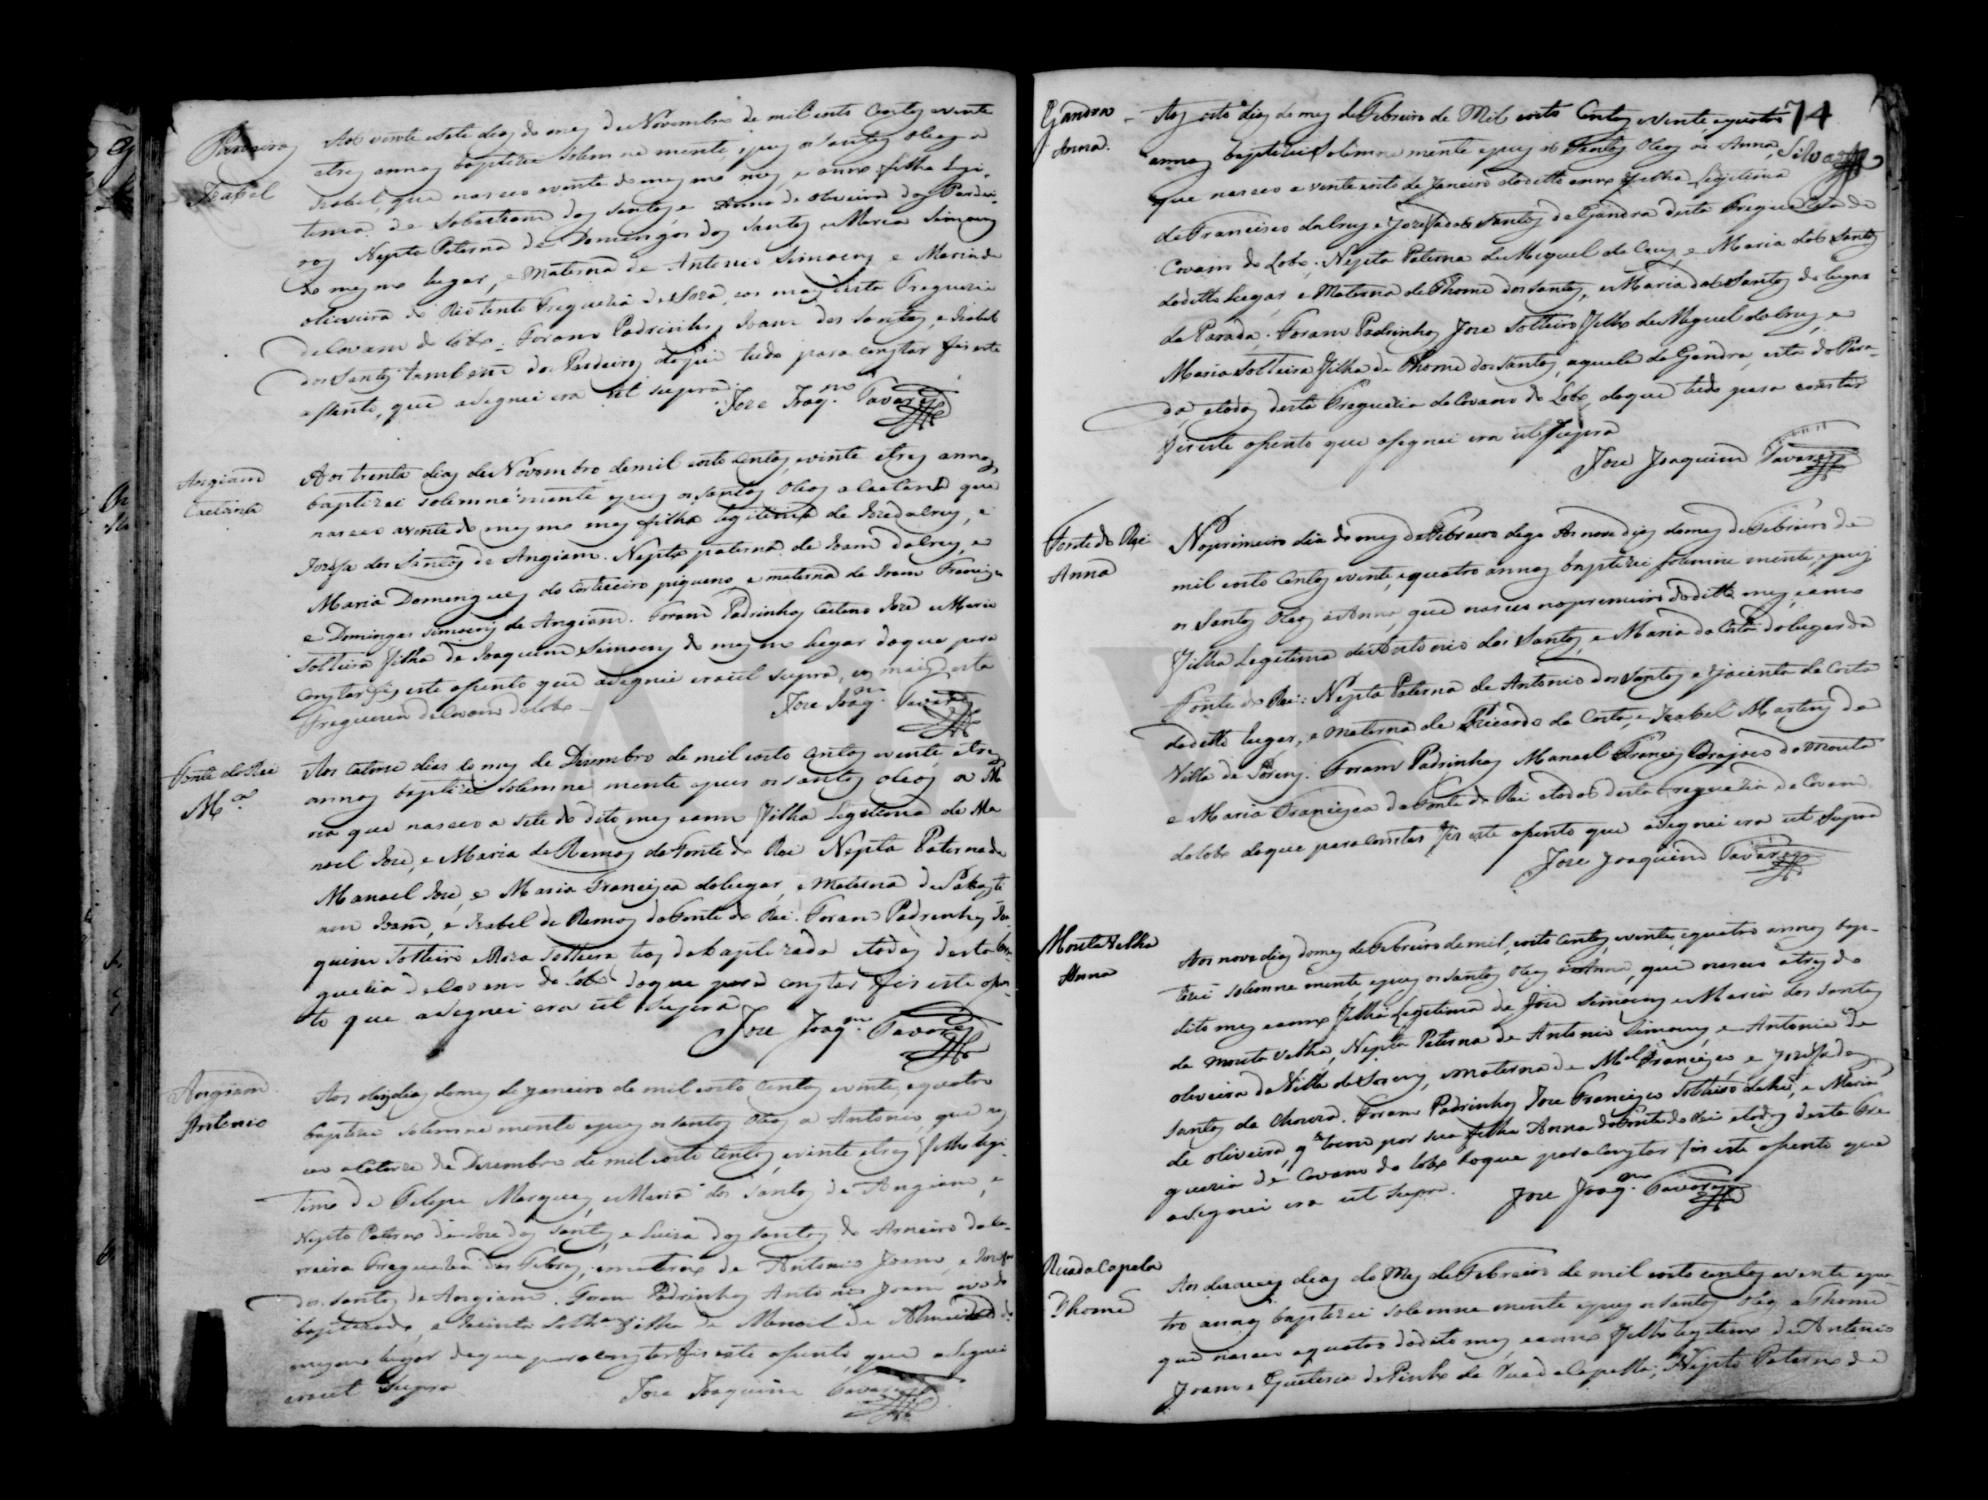 Pardeiros
Isabel
Aos vinte e sete dias do mes de Novembro de mil oito centos e vinte
e tres annos baptizei solemne mente e pus os santos oleos a
Isabel, que nasceo a vinte do mesmo mes, e anno filha legi-
tima de Sebastiam dos santos, e Anna de oliveira dos Pardei-
ros Nepta Paterna de Domingos dos santos e Maria Simoens
do mesmo lugar, e Materna de Antonio Simoens e Maria de
oliveira do Rio tinto Freguezia de Soza, e os mais desta Freguezia
de Covam do lobo. Foram Padrinhos Joam dos santos, e Izabel
dos santos tambem dos Pardeiros de que tudo para constar fis este
assento, que asignei era ut supra
Joze Joaqm. Tavares
Angiam
Caetana
Aos trenta dias de Novembro de mil oito centos, e vinte e tres annos
baptizei solemne mente e pus os santos oleos a Caetana que
nasceo a vinte do mesmo mes filha legitima de Joze da Crus, e
Jozefa dos Santos de Angiam. Nepta paterna de Joam da Crus, e
Maria Domingues do Corticeiro piqueno e materna de Joam Francisco
e Domingas simoens de Angiam. Foram Padrinhos Caetano Joze e Maria
solteira filha de Joaquim Simoens do mesmo lugar do que para
constar fis este assento que asignei era ut supra, e os mais desta
freguezia de Covam do Lobo
Joze Joaqm. Tavares
Fonte do Rei
Ma.
Aos catorse dias do mes de Dizembro de mil oito centos e vinte, e tres
annos baptizei solemne mente e pus os santos oleos a Ma
ria que nasceo a sete do dito mes e anno filha legitima de Ma
noel Joze, e Maria de Ramos da Fonte do Rei Nepta Paterna de
Manoel Joze, e Maria Francisca do lugar, e materna de Sebasti
am Joam, e Izabel de Ramos da Fonte do Rei. Foram Padrinhos, Joa
quim solteiro e Roza solteira tios da baptizada e todos desta Fre
guezia de Covam do lobo do que para constar fis este assen-
to que asignei era ut supra
Joze Joaqm. Tavares
Angiam
Antonio
Aos dias do mes de janeiro de mil oito centos e vinte, e quatro
baptizei solemne mente e pus os santos oleos a Antonio, que nas
ceo a catorze de Dizembro de mil oito centos, e vinte e tres filho legi-
timo de Felipe Marques, e Maria dos santos de Angiam, e
Nepto Paterno de Joze dos santos, e Luiza dos santos do Arneiro da
Freguezia das Febres, e materno de Antonio Joam, e Jozefa
dos santos de Angiam. Foram Padrinhos Antonio Joam avo do
baptizado, e Jacinta soltra. filha de Manoel de Almeida do
mesmo lugar do que para constar fis este assento, que asignei
era ut supra
Joze Joaquim Tavares
74
Silva
Gandra
Anna.
Aos oito dias do mes de Febreiro de Mil oito Centos e vinte, e quatro
annos baptizei solemne mente e pus os santos Oleos a Anna,
que nasceo a vinte oito de Janeiro do ditto anno filha Legitima
de Francisco da Crus e Jozefa dos santos da Gandra desta Freguezia de
Covam do Lobo. Nepta Paterna de Miguel da Crus, e Maria dos santos
do ditto lugar, e Materna de Thomé dos santos, e Maria dos Santos do lugar
da Parada. Foram Padrinhos Joze solteiro filho de Miguel da Crus, e
Maria solteira filha de Thomé dos santos, aquele da Gandra, esta da Para-
da, e todos desta Freguezia de Covam do Lobo, do que tudo para constar
fis este assento que asignei era ut supra
Joze Joaquim Tavares
Fonte do Rei
Anna
No primeiro dia do mes de Febreiro digo Aos nove dias do mes de Febreiro de
mil oito centos e vinte, e quatro annos baptizei solemne mente, e pus
os santos Oleos a Anna, que nasceo no premeiro do ditto mes, e anno
filha Legitima de Antonio dos Santos, e Maria da Costa do lugar da
Fonte do Rei: Nepta Paterna de Antonio dos santos e Jacinta da Costa
do ditto lugar, e materna de Ricardo da Costa e Izabel Martins da
Villa de Sorens. Foram Padrinhos Manoel Frances da mouta
e Maria Francisca da Fonte do Rei e todos desta Freguezia de Covam
do lobo do que para constar fis este assento que asignei era ut supra
Joze Joaquim Tavares
Mouta Velha
Anna
Aos nove dias do mes de Febreiro de mil, oito centos, e vinte, e quatro annos bap-
tizei solemne mente e pus os santos Oleos a Anna, que nasceo a tres do
dito mes e anno filha Legitima de Joze Simoens e Maria dos santos
da mouta velha, Nepta Paterna de Antonio Simoens, e Antonia de
oliveira da Villa de Sorens, e materna de Mel. Francisco e Jozefa dos
santos da Choura. Foram Padrinhos Joze Francisco solteiro e Maria
de oliveira, q. tocou por sua filha Anna da Fonte do Rei e todos desta Fre
guezia de Covam do lobo do que para constar fis este assento que
asignei era ut supra.
Joze Joaqm. Tavares
Rua da Capela
Thomé
Aos deraceis dias do Mes de Febreiro de mil oito centos e vinte e qua-
tro annos baptizei solemne mente e pus os santos oleos a Thomé
que nasceo a quatro do dito mes, e anno filho legitimo de Antonio
Joam e Quiteria de Pinho da Rua da Capella; Nepto Paterno de